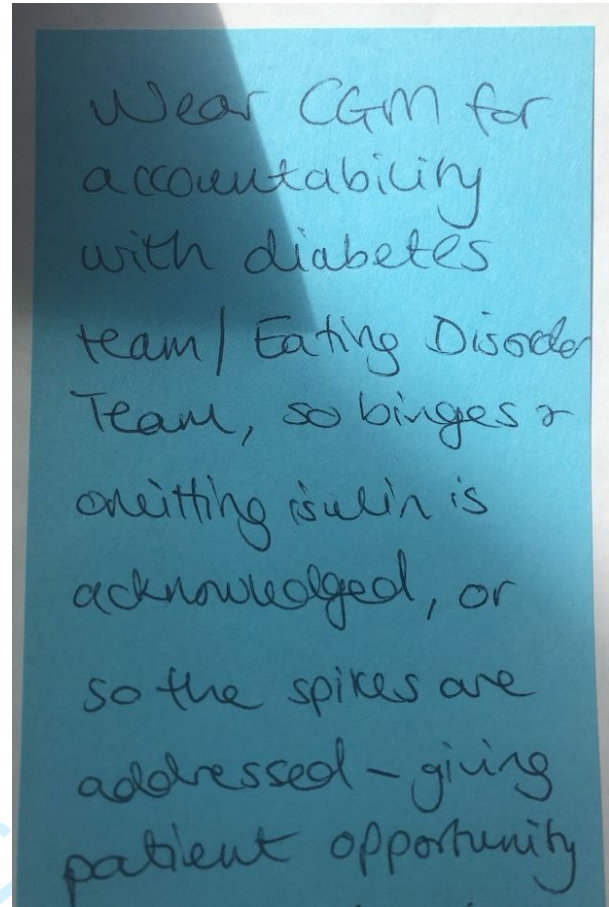 Wear CGM for
accountability
with diabetes
team/ Eating Disorder
Team, so binges &
omitting isulin is
acknowledged, or
so the spikes are
addressed - giving
patient opportunity